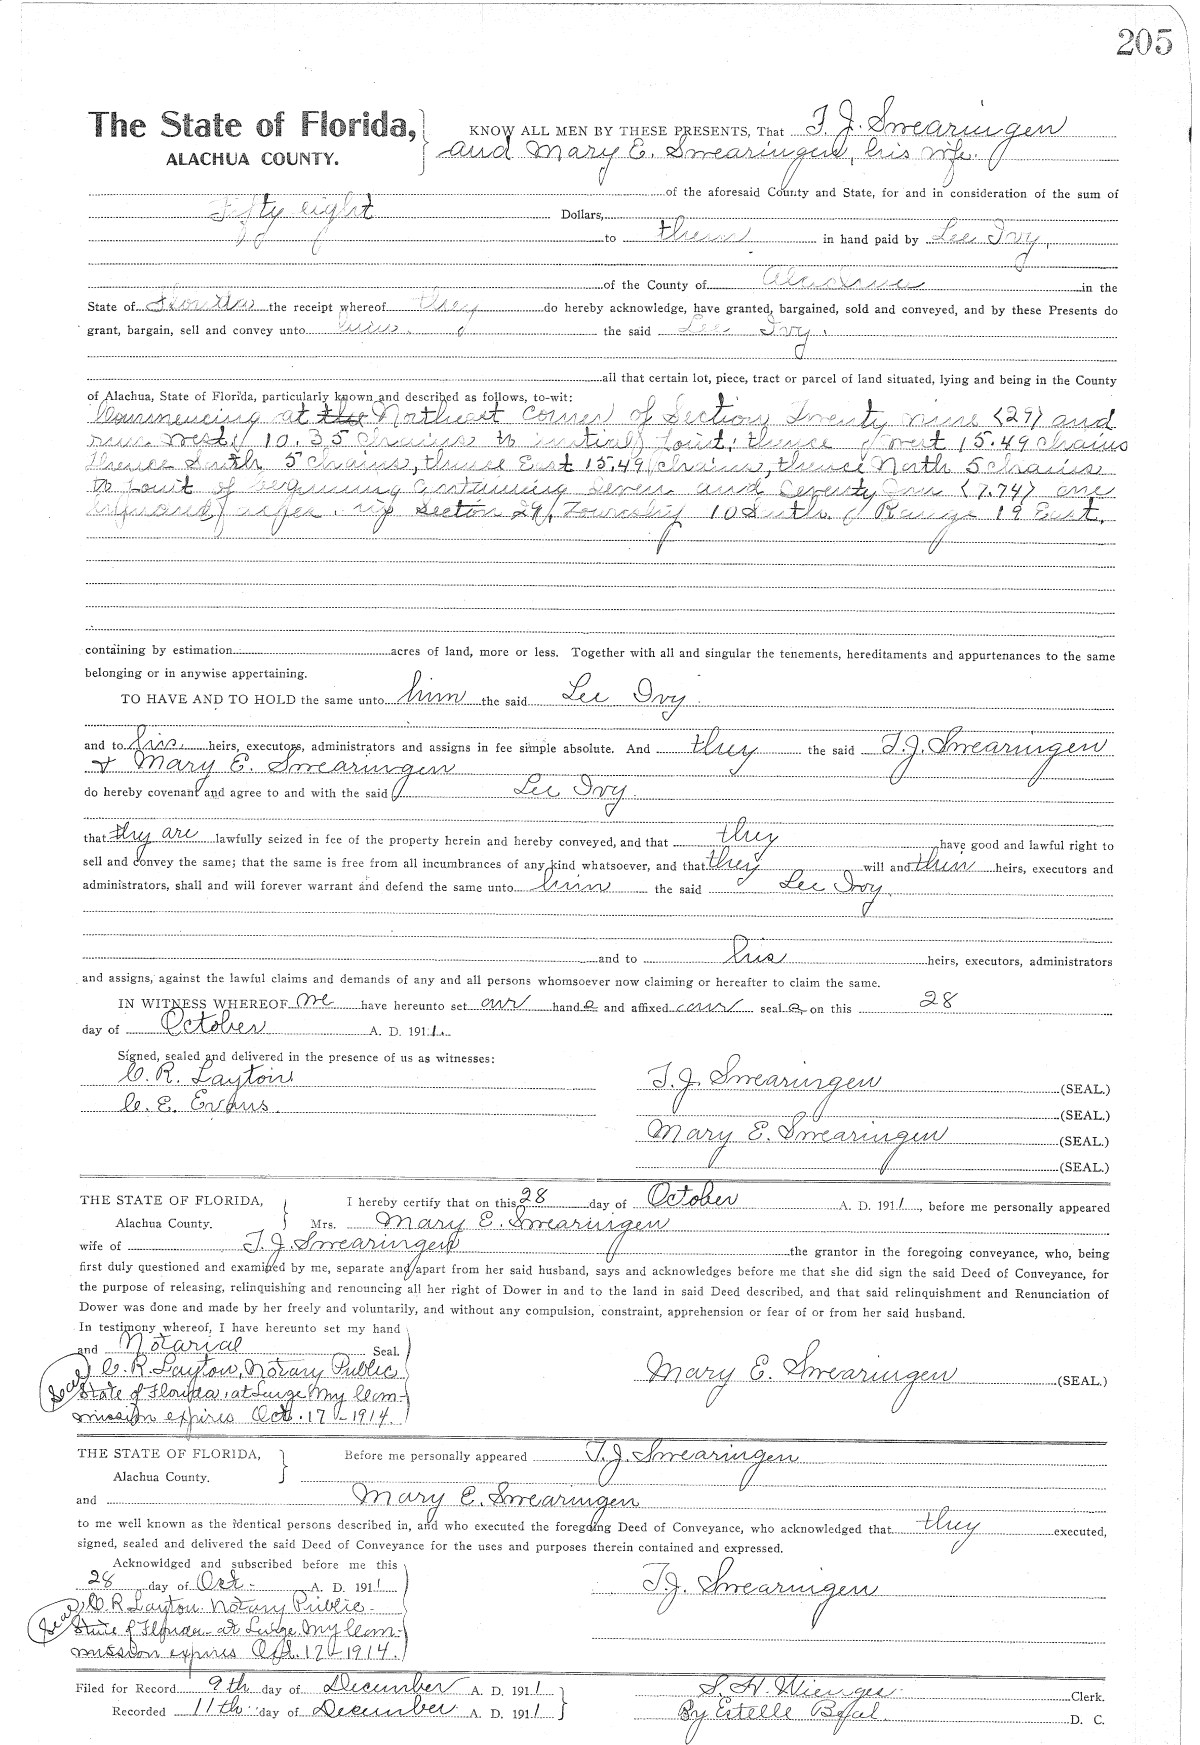 205
The State of Florida,
ALACHUA COUNTY.
KNOW ALL MEN BY THESE PRESENTS, That T. J. Swearingen
and Mary E. Swearingen, his wife.
of the aforesaid County and State, for and in consideration of the sum of
Fifty eight Dollars,
to them in hand paid by Lee Ivy,
of the County of Alachua in the
State of Florida the receipt whereof they do hereby acknowledge, have granted, bargained, sold and conveyed, and by these Presents do
grant, bargain, sell and convey unto him the said Lee Ivy.
all that certain lot, piece, tract or parcel of land situated, lying and being in the County
of Alachua, State of Florida, particularly known and described as follows, to-wit:
Commencing at the Northeast corner of Section Twenty nine (29) and
run West 10.35 chains to initial point; thence West 15.49 chains
thence South 5 chains, thence East 15.49 chains, thence North 5 chains
to point of beginning containing Seven and Seventy four (7.74) one
in Section 29, Township 10 South of Range 19 East.
containing by estimation acres of land, more or less. Together with all and singular the tenements, hereditaments and appurtenances to the same
belonging or in anywise appertaining.
TO HAVE AND TO HOLD the same unto him the said Lee Ivy.
and to his heirs, executors, administrators and assigns in fee simple absolute. And they the said T. J. Swearingen
& Mary E. Swearingen
do hereby covenant and agree to and with the said Lee Ivy.
that they are lawfully seized in fee of the property herein and hereby conveyed, and that they have good and lawful right to
sell and convey the same; that the same is free from all incumbrances of any kind whatsoever, and that they will and their heirs, executors and
administrators, shall and will forever warrant and defend the same unto him the said Lee Ivy.
and to his heirs, executors, administrators
and assigns, against the lawful claims and demands of any and all persons whomsoever now claiming or hereafter to claim the same.
IN WITNESS WHEREOF we have hereunto set our hand s and affixed our seal s on this 28
day of October A. D. 1911.
Signed, sealed and delivered in the presence of us as witnesses:
C. R. Layton
C. E. Evans.
T. J. Swearingen (SEAL.)
(SEAL.)
Mary E. Swearingen (SEAL.)
(SEAL.)
THE STATE OF FLORIDA,
Alachua County.
I hereby certify that on this 28 day of October A. D. 1911, before me personally appeared
Mrs. Mary E. Swearingen
wife of T. J. Swearingen the grantor in the foregoing conveyance, who, being
first duly questioned and examined by me, separate and apart from her said husband, says and acknowledges before me that she did sign the said Deed of Conveyance, for
the purpose of releasing, relinquishing and renouncing all her right of Dower in and to the land in said Deed described, and that said relinquishment and Renunciation of
Dower was done and made by her freely and voluntarily, and without any compulsion, constraint, apprehension or fear of or from her said husband.
In testimony whereof, I have hereunto set my hand
and Notarial Seal.
Seal C. R. Layton, Notary Public
State of Florida, at Large My Com-
mission expires Oct. 17 - 1914.
Mary E. Swearingen (SEAL.)
THE STATE OF FLORIDA,
Alachua County.
Before me personally appeared T. J. Swearingen
and Mary E. Swearingen
to me well known as the identical persons described in, and who executed the foregoing Deed of Conveyance, who acknowledged that they executed,
signed, sealed and delivered the said Deed of Conveyance for the uses and purposes therein contained and expressed.
Acknowldged and subscribed before me this
28 day of Oct - A. D. 1911
Seal C. R. Layton. Notary Public -
State of Florida - at Large. My Com-
mission expires Oct. 17 - 1914.
T. J. Swearingen
Filed for Record 9th day of December A. D. 1911
Recorded 11th day of December A. D. 1911
S. H. Wienges. Clerk.
By Estelle D. C.